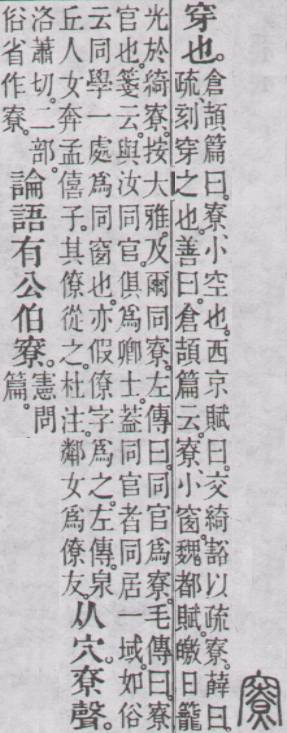 竂
穿也。
倉頡篇曰。寮、小空也。西京賦曰。交綺豁以疏寮。薛曰。
疏、刻穿之也。善曰。倉頡篇云。寮、小窗。魏都賦。皦日籠
光於綺寮。按大雅。及爾同寮。左傳曰。同官爲寮。毛傳曰。寮
官也。箋云。與汝同官。俱爲卿士。葢同官者同居一域。如俗
云同學一處爲同窗也。亦假僚字爲之。左傳。泉
丘人女奔孟僖子。其僚從之。杜注。鄰女爲僚友。
从穴。尞聲。
洛蕭切。二部。
俗省作寮。
論語有公伯寮。
憲問
篇。